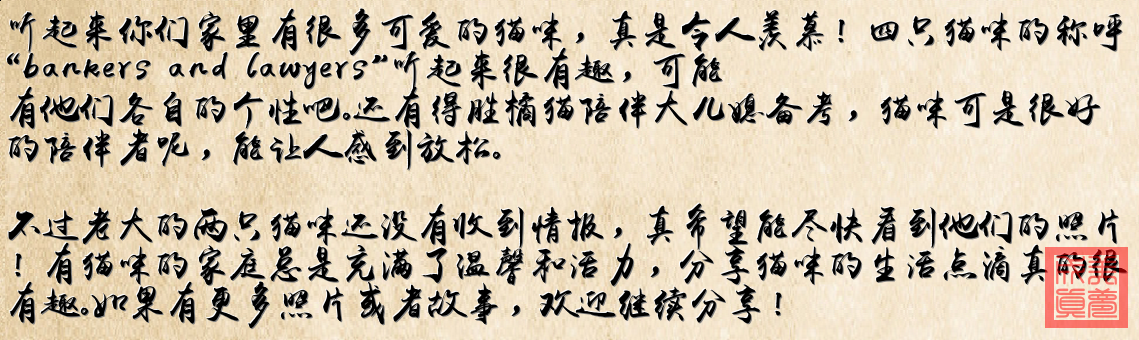 听起来你们家里有很多可爱的猫咪，真是令人羡慕！四只猫咪的称呼
“bankers and lawyers”听起来很有趣，可能
有他们各自的个性吧。还有得胜橘猫陪伴大儿媳备考，猫咪可是很好
的陪伴者呢，能让人感到放松。
不过老大的两只猫咪还没有收到情报，真希望能尽快看到他们的照片
！有猫咪的家庭总是充满了温馨和活力，分享猫咪的生活点滴真的很
有趣。如果有更多照片或者故事，欢迎继续分享！